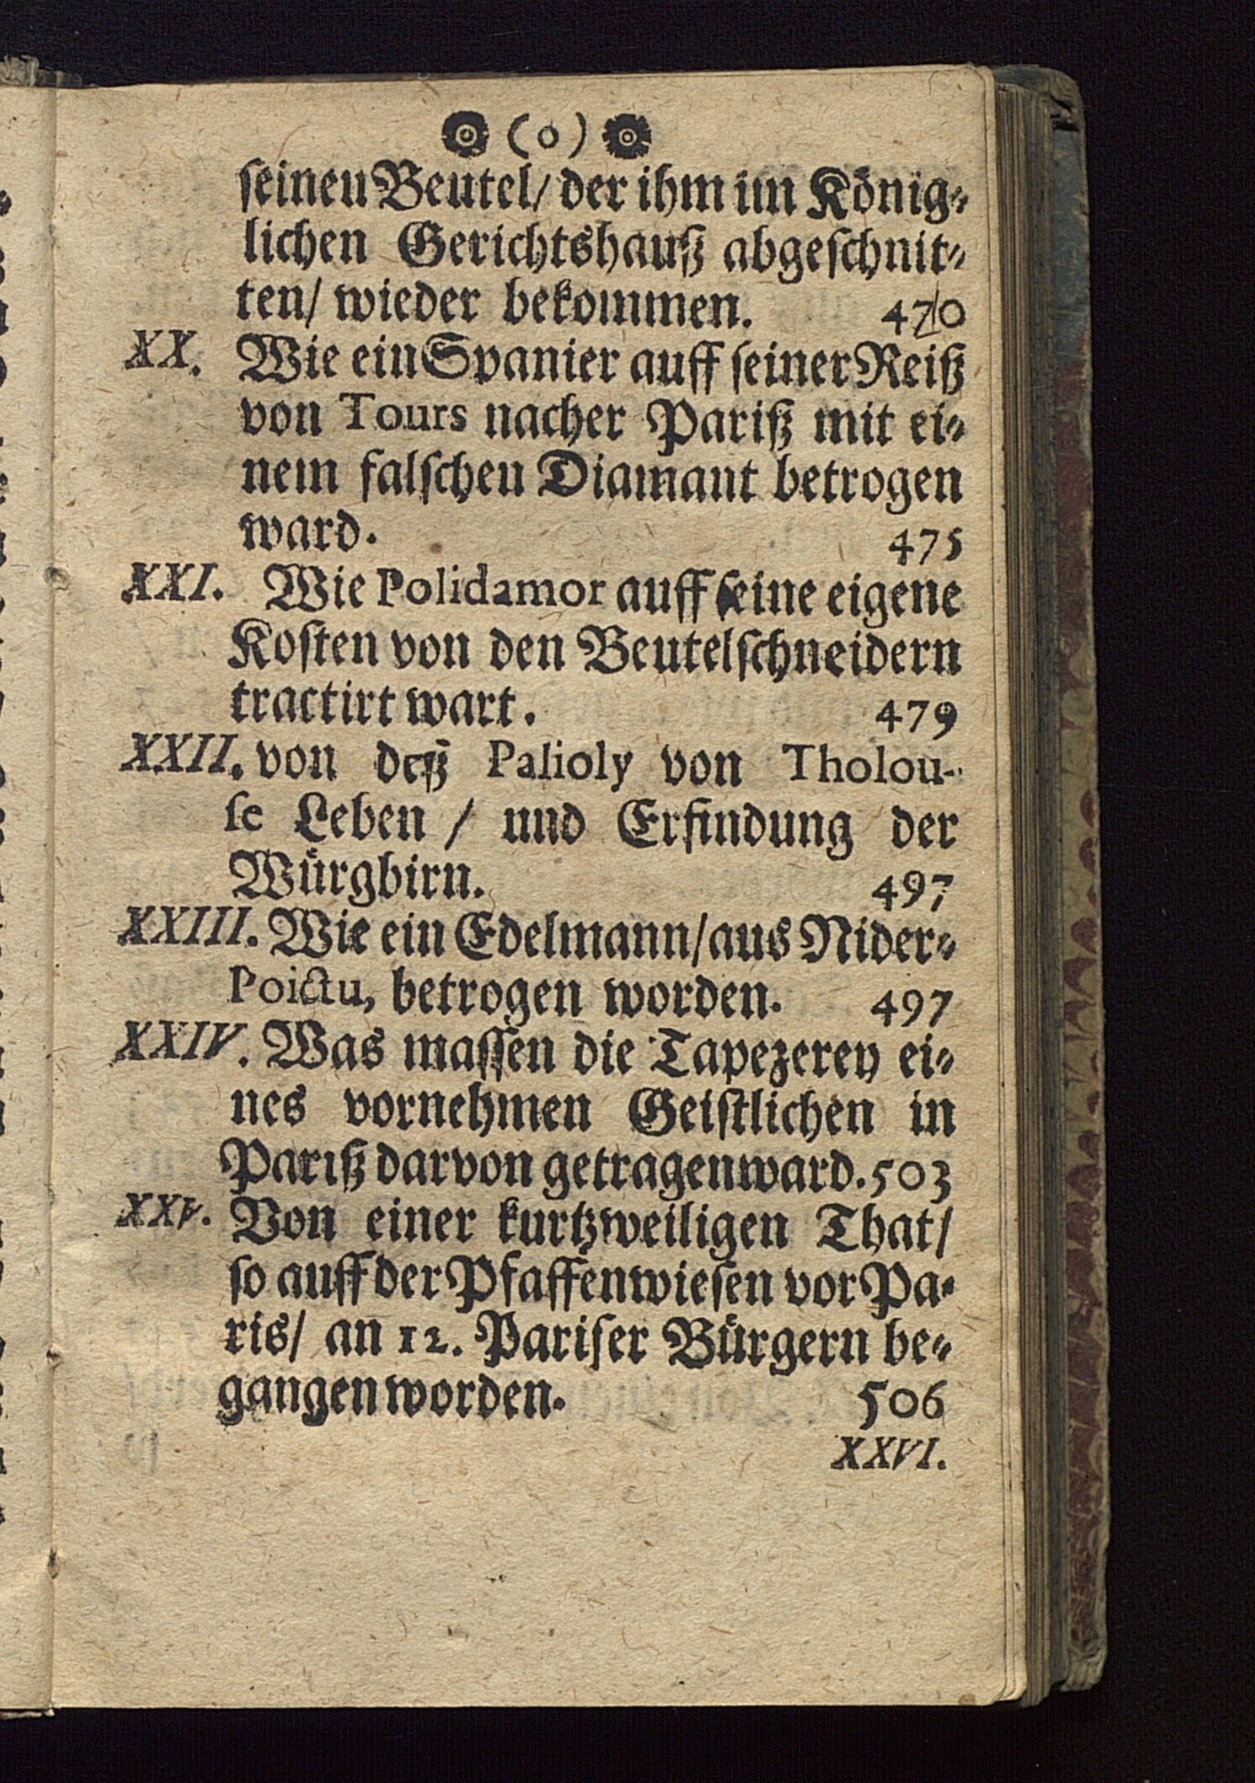 (o)
ſeinen Beutel/ der ihm im König-
lichen Gerichtshauß abgeſchnit-
ten/ wieder bekommen. 470
XX. Wie ein Spanier auff ſeiner Reiß
von Tours nacher Pariß mit ei-
nem falſchen Diamant betrogen
ward. 475
XXI. Wie Polidamor auff ſeine eigene
Koſten von den Beutelſchneidern
tractirt wart. 479
XXII. von deß Palioly von Tholou-
ſe Leben / und Erfindung der
Würgbirn. 497
XXIII. Wie ein Edelmann/ aus Nider-
Poictu, betrogen worden. 497
XXIV. Was maſſen die Tapezerey ei-
nes vornehmen Geiſtlichen in
Pariß darvon getragen ward. 503
XXV. Von einer kurtzweiligen That/
ſo auff der Pfaffenwieſen vor Pa-
ris/ an 12. Pariſer Bürgern be-
gangen worden. 506
XXVI.